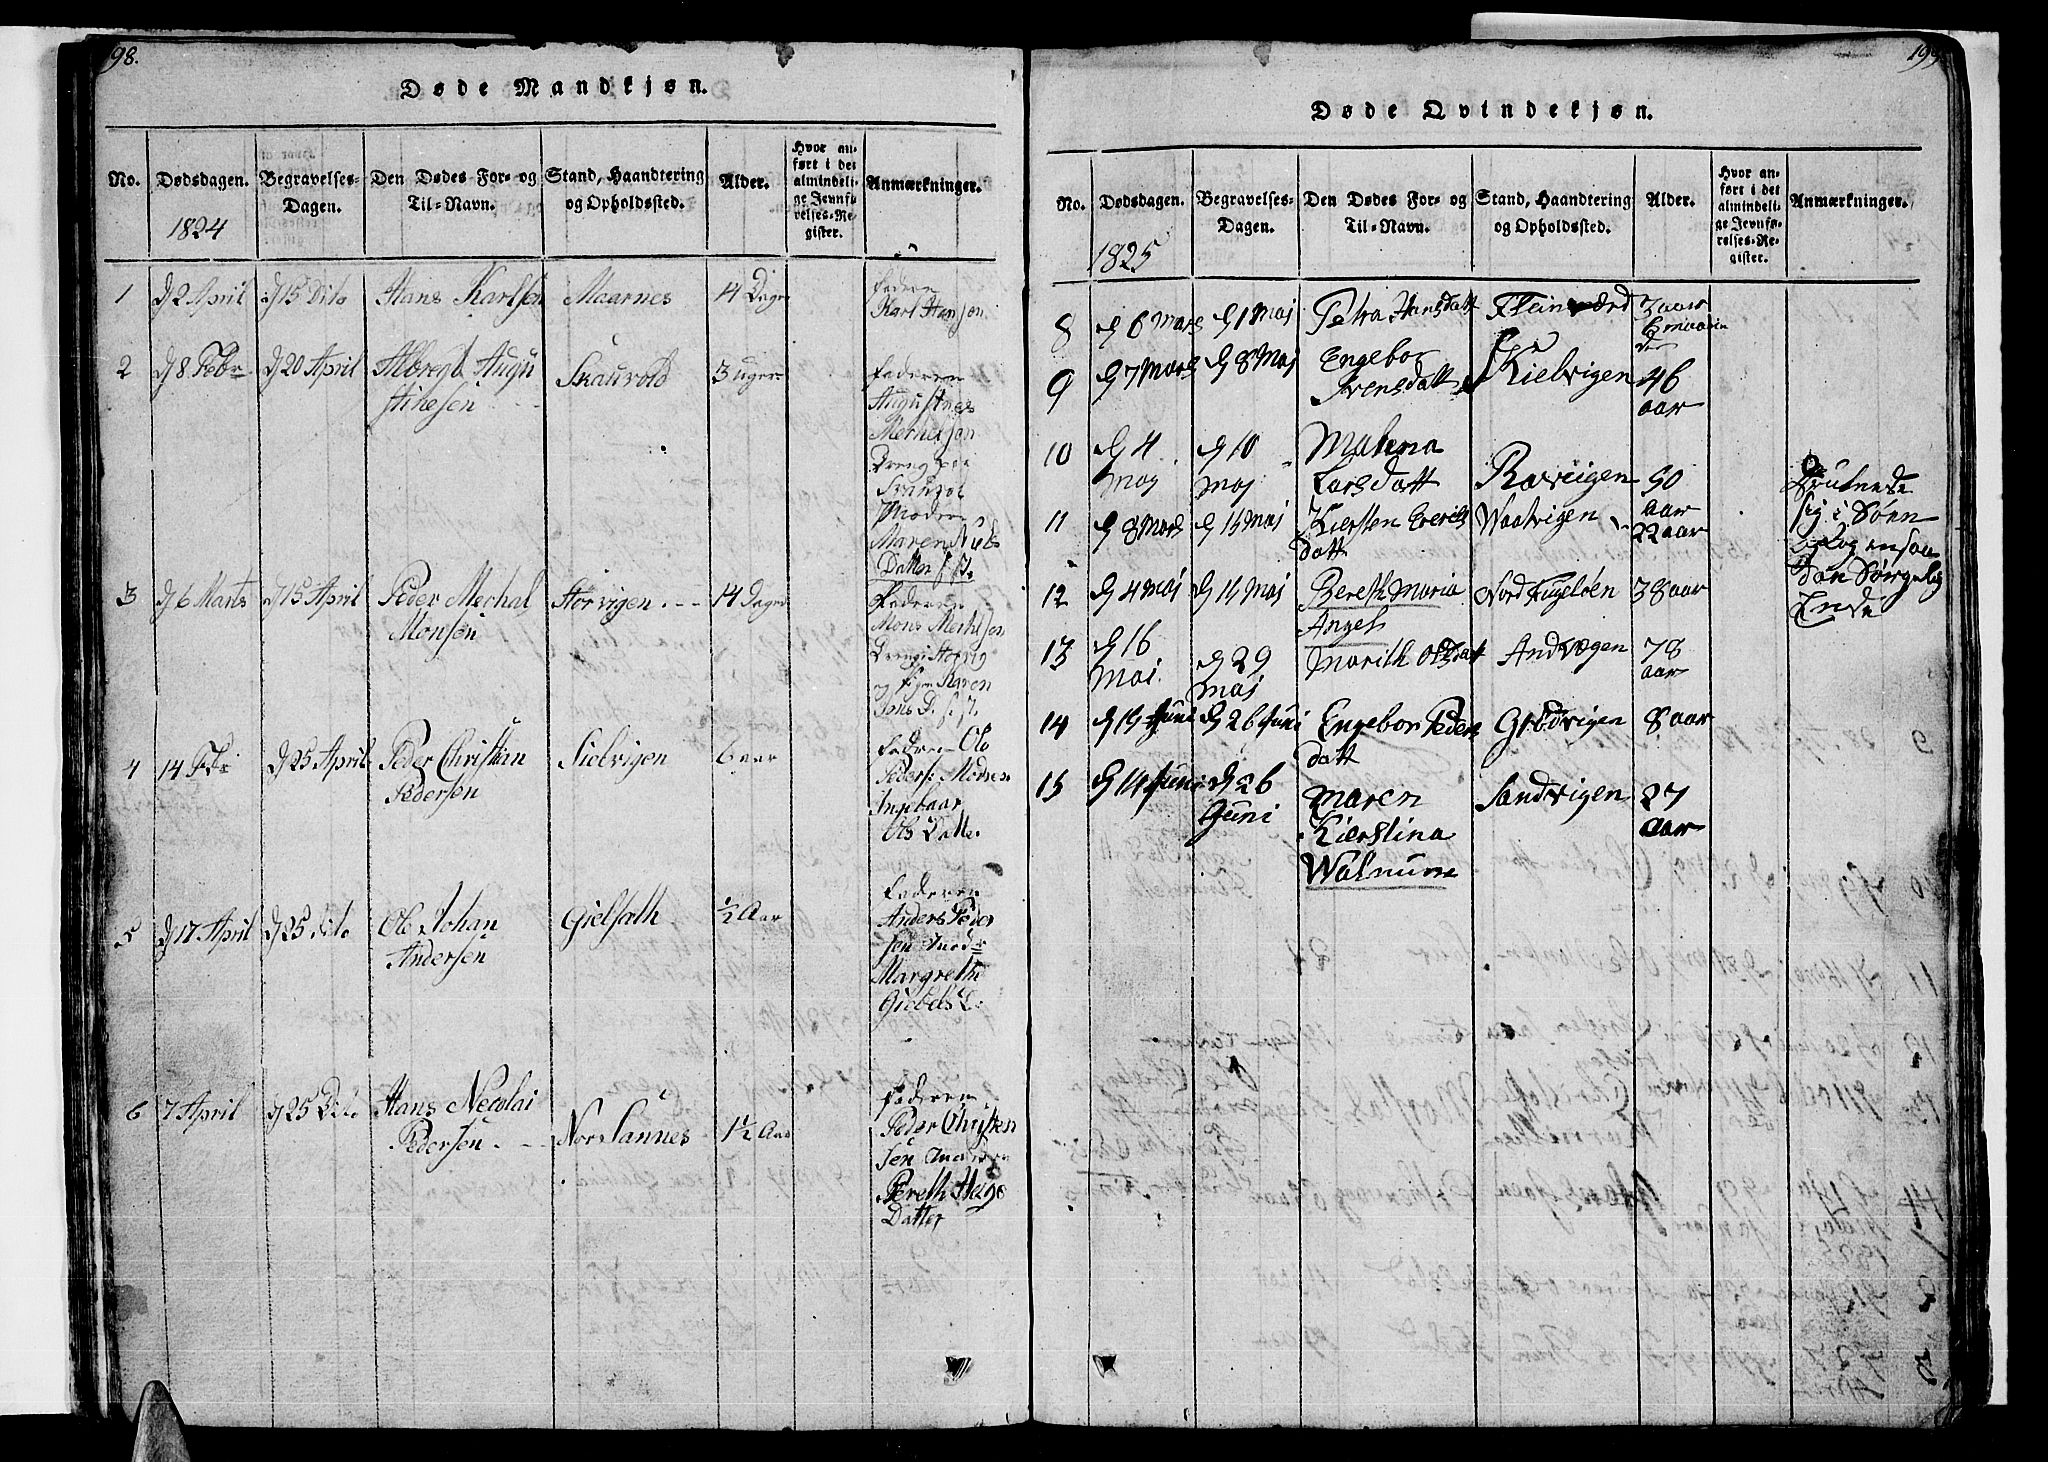 98.
Døde Mandkjøn.
No.
Dødsdagen.
1824
Begravelses-
Dagen.
Den Dødes For- og
Til-Navn.
Stand, Haandtering
og Opholdssted.
Alder.
Hvor an-
ført i det
almindeli-
ge Jevnfø-
relses-Re-
gister.
Anmærkninger.
1 d 2 April d 15 Dito Hans Karlsen Maarnes 14 Dage
Faderen
Karl Hansen
2 d 8 Febr d 20 April Albregt Augu
stinesen
Skauvold 3 uger
Faderen
Augustnes
Merhelsen
Dreng paa
Moderen
Maren
Datter
3 d 6 Marts d 15 April Peder Merhal
Monsen
Storvigen 14 Dage
Faderen
Mons Merhelsen
Dreng i Storvig
og Pigen Karen
Jons D.
4 14 Febr d 25 April Peder Christian
Pedersen
Sielvigen 6 aar
Faderen Ole
Peders: Modren
Ingebaar
Ols Datter
5 d 17 April d 25 Dito Ole Johan
Andersen
Gielsæth 1/2 Aar
Faderen
Anders Peder
sen Modr
Margrethe
6 7 April d 25 Dito Hans Necolai
Pedersen
Nor Sannes 1 1/2 Aar
Faderen
Peder Christen
sen Moderen
Bereth Helge
Datter
199
Døde Qvindekjøn.
No.
Dødsdagen.
1825
Begravelses-
Dagen.
Den Dødes For- og
Til-Navn.
Stand, Haandtering
og Opholdssted.
Alder.
Hvor an-
ført i det
almindeli-
ge Jevnfø-
relses-Re-
gister.
Anmærkninger.
8 d 6 Mars d 1 Maj Petra Hansdatt Fleinværd 3 aar
6 maanin
der
9 d 7 Mars d 8 Maj Engebor
Svensdatt
Kielvigen 46
aar
10 d 4
Maj
d 10
Maj
Malena
Larsdatt
Rørvigen 50
aar
Druknede
sig i Søen
og tog en saa
dan Sørgelig
Ende
11 d 8 Mars d 15 Maj Kiersten Everts
datt
Waatvigen 22 aar
12 d 4 Maj d 15 Maj Bereth Maria
Angel
Nord Fugeløen 38 aar
13 d 16
Maj
d 29
Maj
Marith Olsdatt Andvægen 78
aar
14 d 15 Juni d 26 Juni Engebor Peders
datt
Glødvigen 8 aar
15 d 14 Juni d 26
Juni
Maren
Kierstina
Walnum
Sandvigen 27
aar